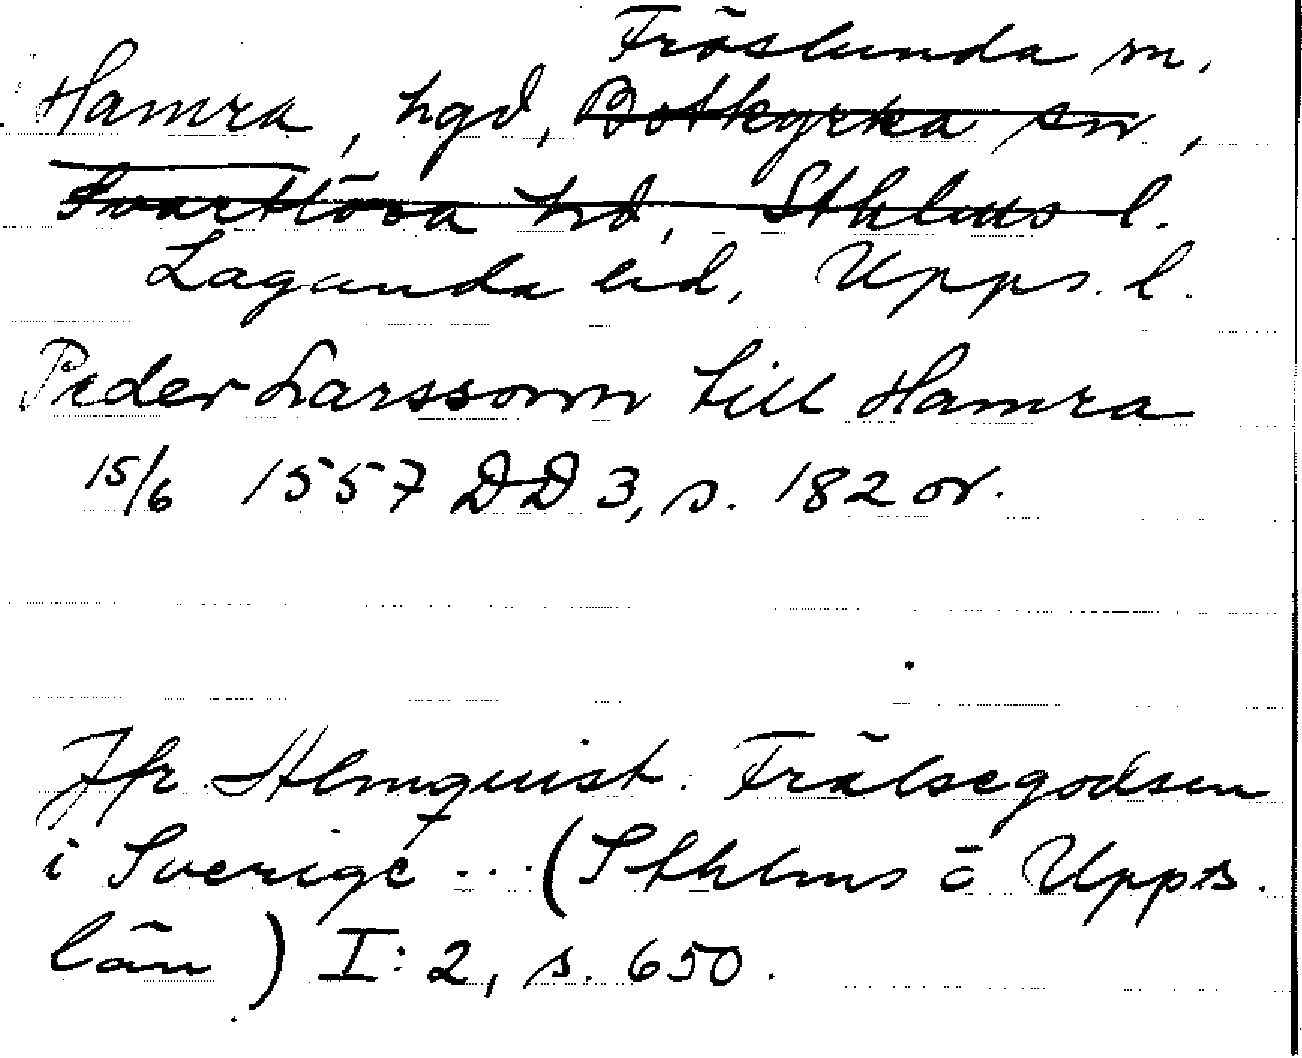 Fröslunda sn.
Hamra, hgd, Botkyrka sn,
Svartlösa hd, Sthlms l.
Lagunda hd, Upps. l.
Peder Larssonn till Hamra
15/6 1557 DD 3, s. 182 or.
Jfr Almquist. Frälsegodsen
i Sverige ... (Sthlms o Upps.
län) I:2, s. 650.